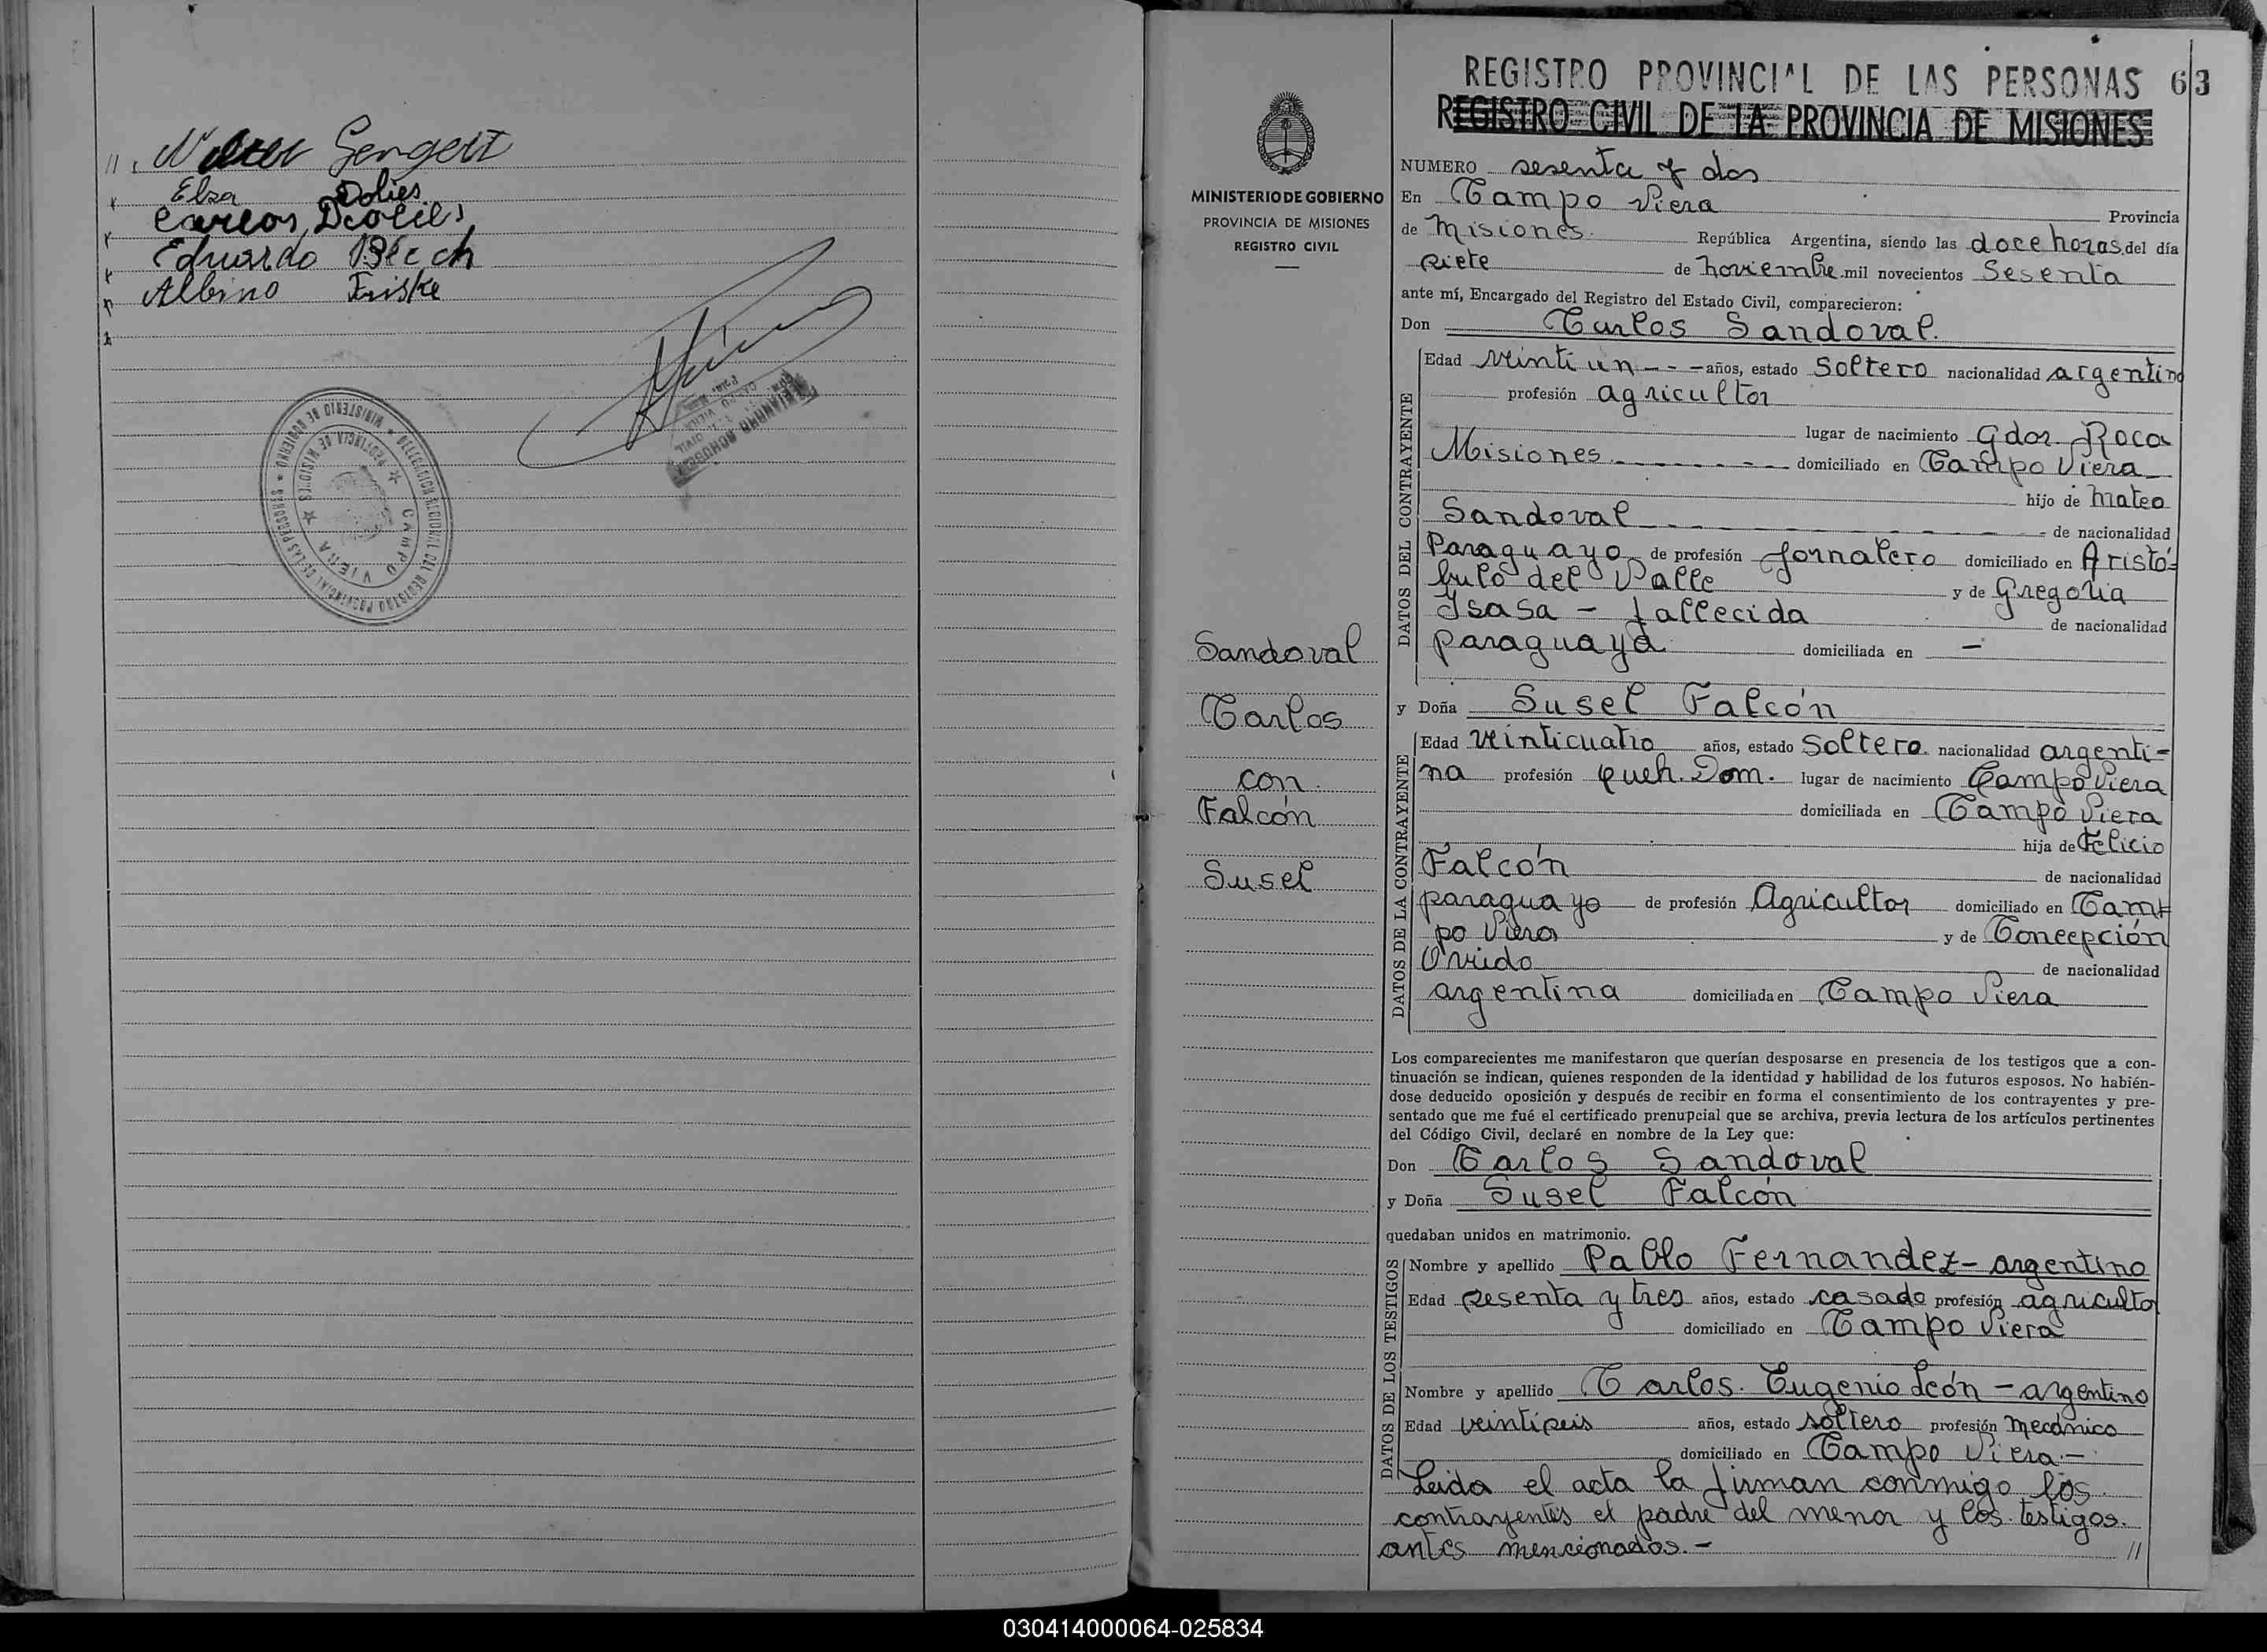 Gengelt
Elsa Dolies
Carlos
Eduardo Blech
Albino Friske
MINISTERIO DE GOBIERNO
PROVINCIA DE MISIONES
CAMPO VIERA
REGISTRO PROVINCIAL DE LAS PERSONAS 63
REGISTRO CIVIL DE LA PROVINCIA DE MISIONES
MINISTERIO DE GOBIERNO
PROVINCIA DE MISIONES
REGISTRO CIVIL
Sandoval
Carlos
con
Falcón
Susel
NUMERO sesenta y dos
En Campo Viera Provincia
de Misiones República Argentina, siendo las doce horas del día
siete de noviembre mil novecientos sesenta
ante mí, Encargado del Registro del Estado Civil, comparecieron:
Don Carlos Sandoval.
DATOS DEL CONTRAYENTE
Edad veinti un - - - años, estado soltero nacionalidad argentino
profesión agricultor
lugar de nacimiento Gdor. Roca
Misiones - - - domiciliado en Campo Viera
hijo de Mateo
Sandoval - - - de nacionalidad
Paraguayo de profesión Jornalero domiciliado en Aristó=
bulo del Valle y de Gregoria
Isasa - fallecida de nacionalidad
paraguaya domiciliada en -
y Doña Susel Falcón
DATOS DE LA CONTRAYENTE
Edad veinticuatro años, estado soltera nacionalidad argenti=
na profesión queh. Dom. lugar de nacimiento Campo Viera
domiciliada en Campo Viera
hija de Felicio
Falcón de nacionalidad
paraguayo de profesión Agricultor domiciliado en Cam=
po Viera y de Concepción
Oviedo de nacionalidad
argentina domiciliada en Campo Viera
Los comparecientes me manifestaron que querían desposarse en presencia de los testigos que a con-
tinuación se indican, quienes responden de la identidad y habilidad de los futuros esposos. No habién-
dose deducido oposición y después de recibir en forma el consentimiento de los contrayentes y pre-
sentado que me fué el certificado prenupcial que se archiva, previa lectura de los artículos pertinentes
del Código Civil, declaré en nombre de la Ley que:
Don Carlos Sandoval
y Doña Susel Falcón
quedaban unidos en matrimonio.
DATOS DE LOS TESTIGOS
Nombre y apellido Pablo Fernandez - argentino
Edad sesenta y tres años, estado casado profesión agricultor
domiciliado en Campo Viera
Nombre y apellido Carlos. Eugenio León - argentino
Edad veintiseis años, estado soltero profesión mecánico
domiciliado en Campo Viera.-
Leida el acta la firman conmigo los
contrayentes el padre del menor y los testigos.
antes mencionados.- //
030414000064-025834